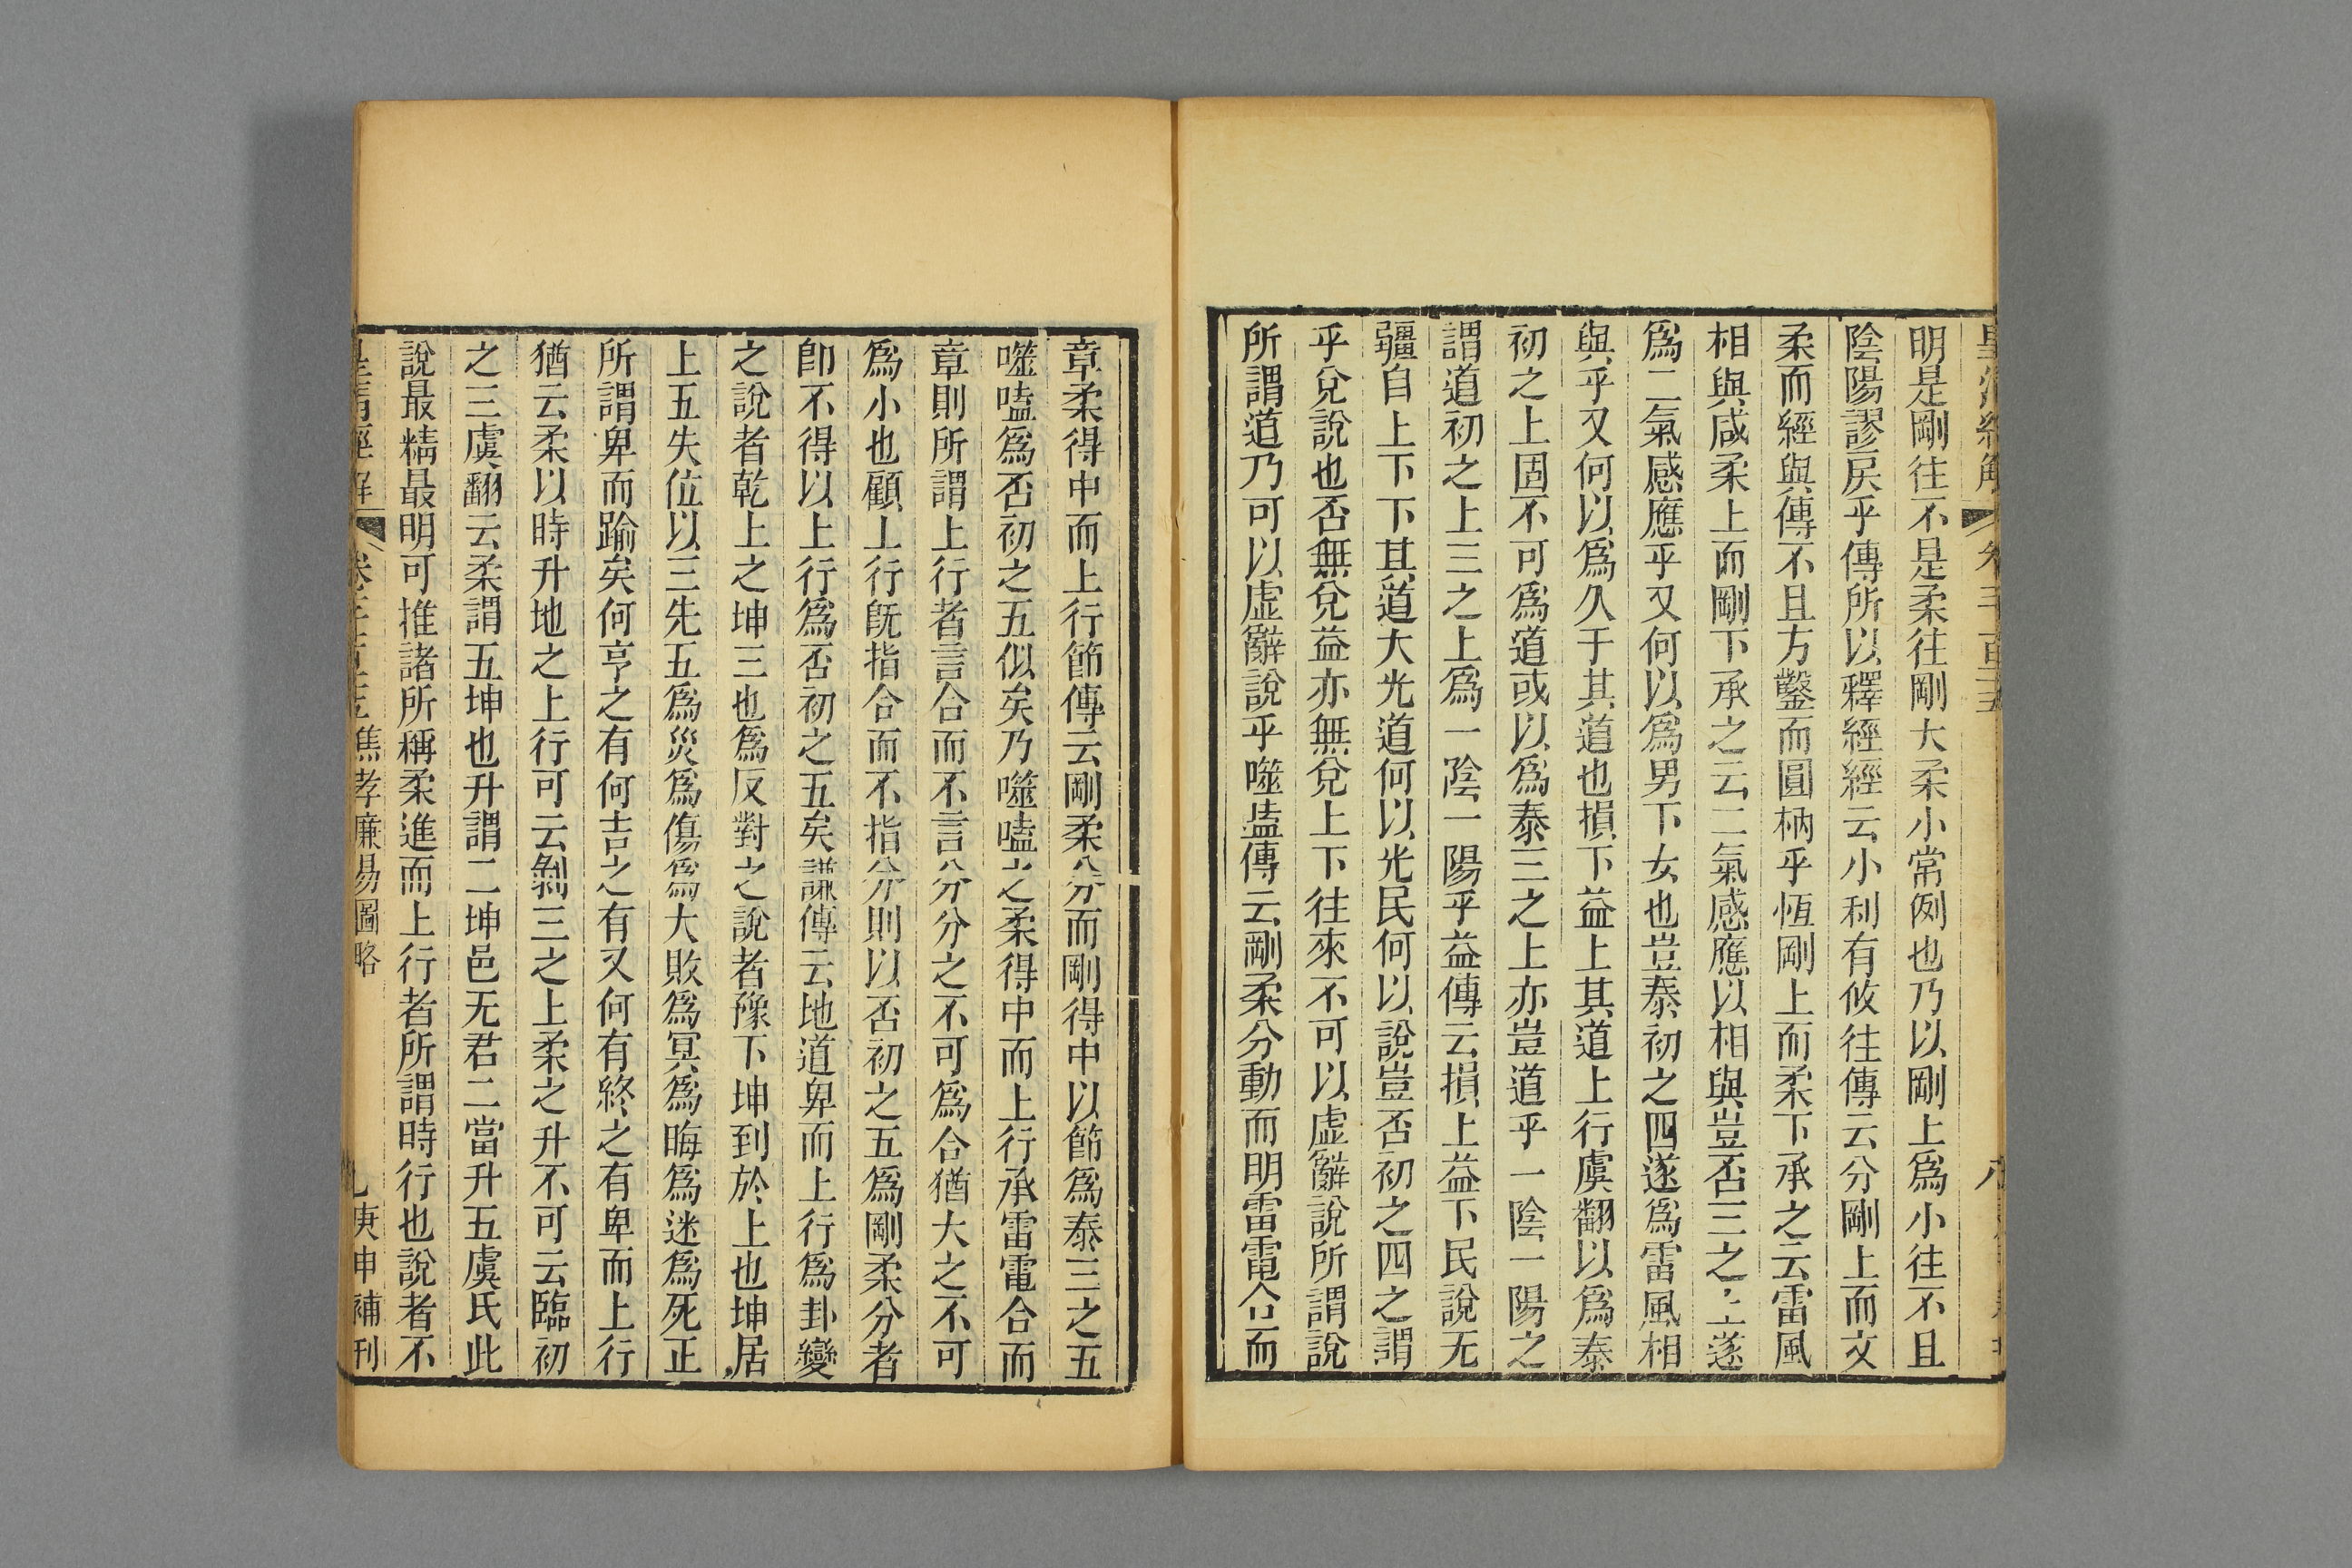 明是剛往不是柔往剛大柔小常例也乃以剛上爲小往不且
陰陽謬戾乎傳所以釋經經云小利有攸往傳云分剛上而文
柔而經與傳不且方鑿而圓枘乎恆剛上而柔下承之云雷風
相與咸柔上而剛下承之云二氣感應以相與豈否三之上遂
爲二氣感應乎又何以爲男下女也豈泰初之四遂爲雷風相
與乎又何以爲久于其道也損下益上其道上行虞翻以爲泰
初之上固不可爲道或以爲泰三之上亦豈道乎一陰一陽之
謂道初之上三之上爲一陰一陽乎益傳云損上益下民說无
疆自上下下其道大光道何以光民何以說豈否初之四之謂
乎兌說也否無兌益亦無兌上下往來不可以虛辭說所謂說
所謂道乃可以虛辭說乎噬嗑傳云剛柔分動而明雷電合而
章柔得中而上行節傳云剛柔分而剛得中以節爲泰三之五
噬嗑爲否初之五似矣乃噬嗑之柔得中而上行承雷電合而
章則所謂上行者言合而不言分分之不可爲合猶大之不可
爲小也顧上行旣指合而不指分則以否初之五爲剛柔分者
卽不得以上行爲否初之五矣謙傳云地道卑而上行爲卦變
之說者乾上之坤三也爲反對之說者豫下坤到於上也坤居
上五失位以三先五爲災爲傷爲大敗爲冥爲晦爲迷爲死正
所謂卑而踰矣何亨之有何吉之有又何有終之有卑而上行
猶云柔以時升地之上行可云剝三之上柔之升不可云臨初
之三虞翻云柔謂五坤也升謂二坤邑无君二當升五虞氏此
說最精最明可推諸所稱柔進而上行者所謂時行也說者不
皇清經解 焦孝廉易圖略 庚申補刊